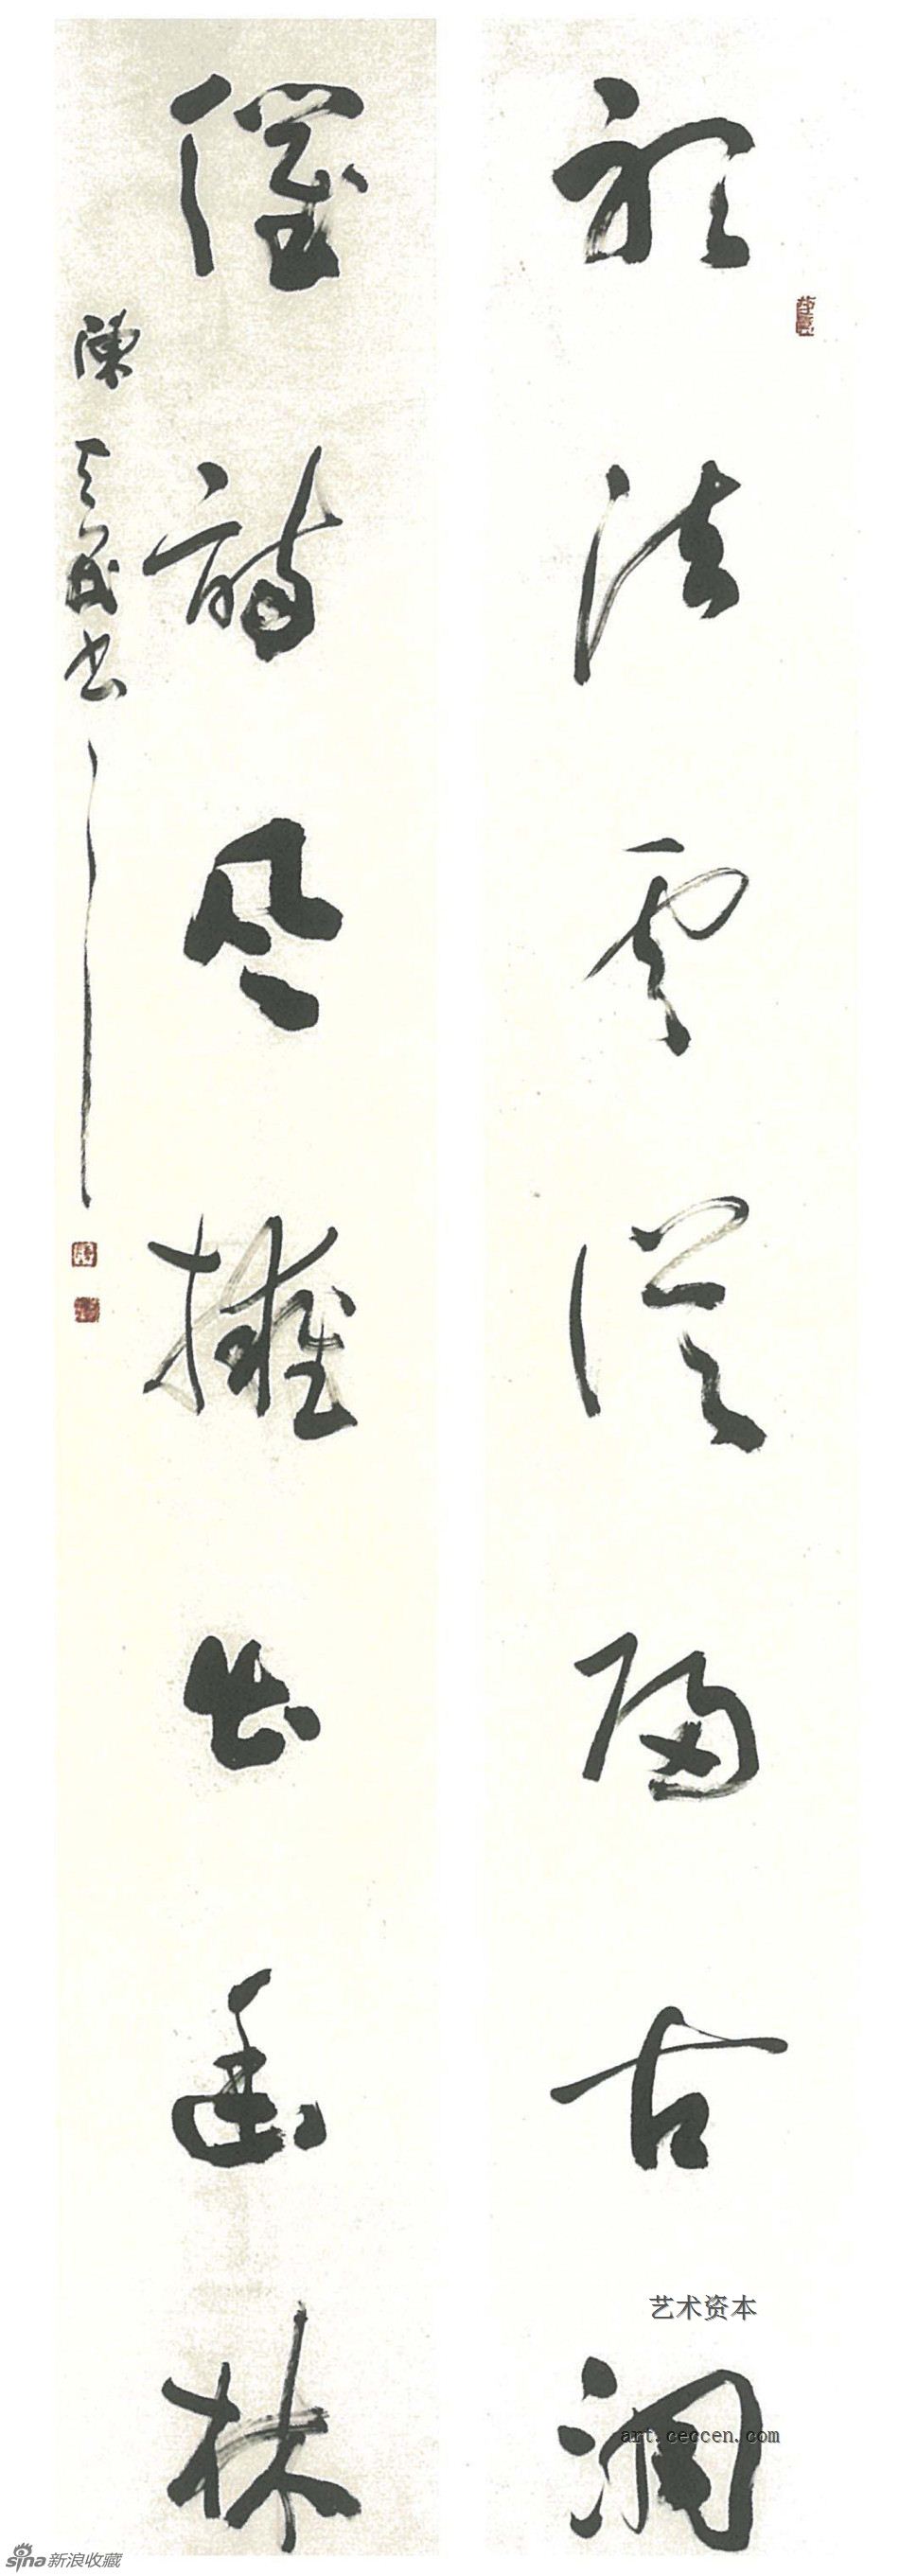 法雲從歸古澗
風擁出幽林
陳天民書
艺术资本
art.ceccen.com
sina新浪收藏